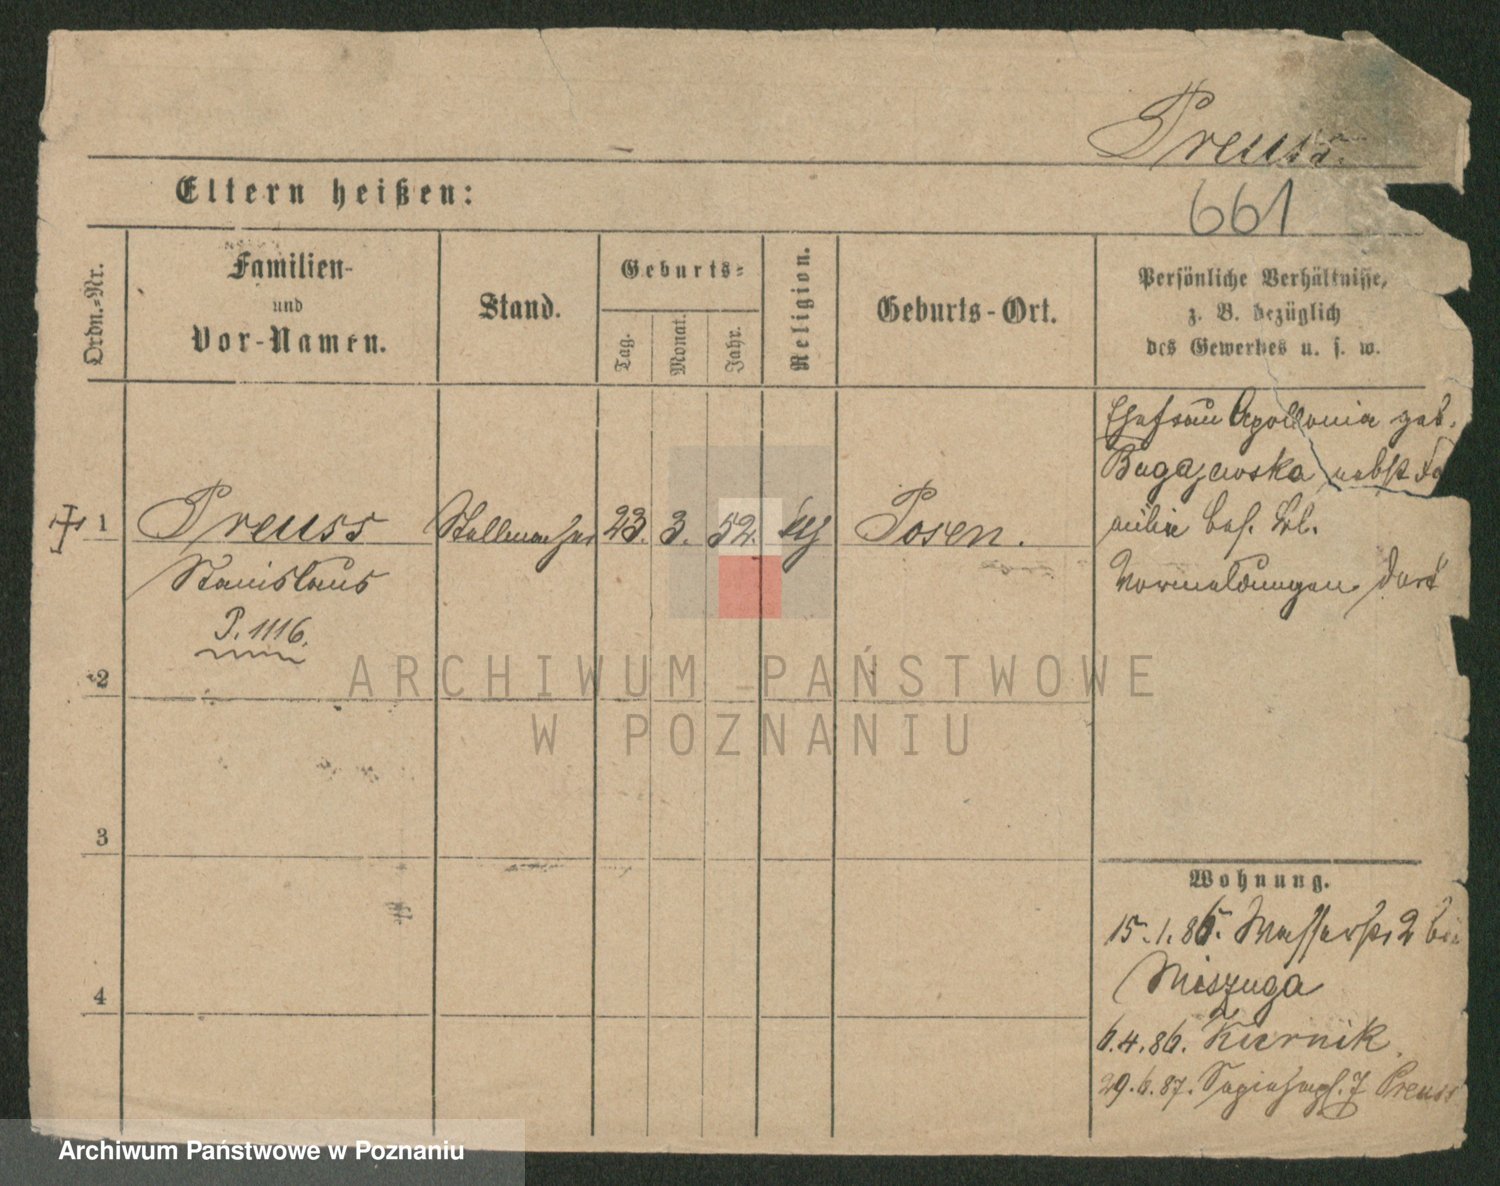 Preuss.
Eltern heißen:
661
Ordn.-Nr.
Familien-
und
Vor-Namen.
Stand.
Geburts-
Tag.
Monat.
Jahr.
Religion.
Geburts-Ort.
Persönliche Verhältnisse,
z. B. bezüglich
des Gewerbes u. s. w.
1 Preuss Stellmacher 23. 3. 52. Posen.
Stanislaus
P. 1116.
Ehefrau Apollonia geb.
Bugajewska nebst Fa
milie bes.
Vormeldungen dort
2
3
4
Wohnung.
15.1.86. Wasserstr 2 bei
Miszuga
6.4.86. Kurnik.
29.6.87. 7 Preuss
ARCHIWUM PAŃSTWOWE
W POZNANIU
Archiwum Państwowe w Poznaniu